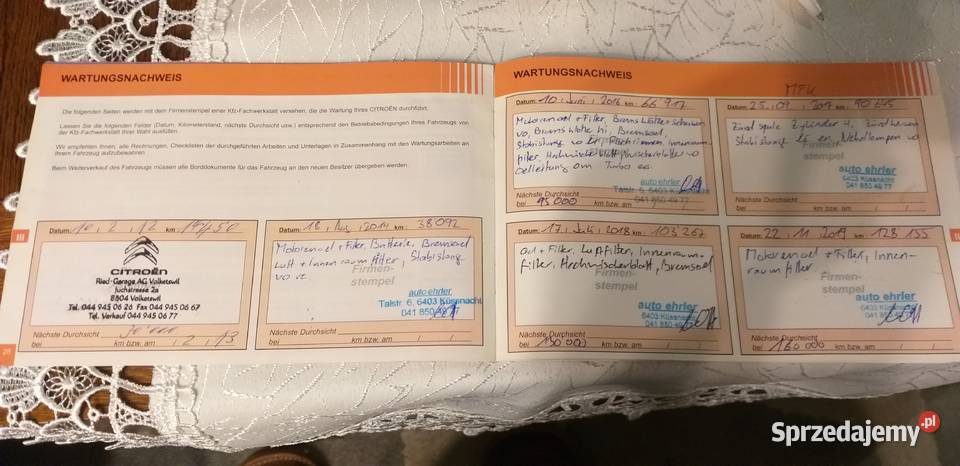 WARTUNGSNACHWEIS
Die folgenden Seiten werden mit dem Firmenstempel einer Kfz-Fachwerkstatt versehen, die die Wartung Ihres CITROËN durchführt.
Lassen Sie die folgenden Felder (Datum, Kilometerstand, nächste Durchsicht usw.) entsprechend den Betriebsbedingungen Ihres Fahrzeugs von
der Kfz-Fachwerkstatt Ihrer Wahl ausfüllen.
Wir empfehlen Ihnen, alle Rechnungen, Checklisten der durchgeführten Arbeiten und Unterlagen in Zusammenhang mit den Wartungsarbeiten an
Ihrem Fahrzeug aufzubewahren.
Beim Weiterverkauf des Fahrzeugs müssen alle Borddokumente für das Fahrzeug an den neuen Besitzer übergeben werden.
Datum: 10 / 2 / 12 km
CITROËN
Ried-Garage AG Volketswil
Juchstrasse 2a
8604 Volketswil
Tel. 044 945 06 26 Fax 044 945 06 67
Tel. Verkauf 044 945 06 77
Nächste Durchsicht
bei km bzw. am / 2 / 13
Datum: 18 / / 2014 km: 38092
Motorenoel + Filter, Batterie, Bremsoel
Luft + Innenraumfilter, Stabistang
vo re
Firmen-
stempel
auto ehrler
Talstr. 6, 6403 Küssnacht
041 850 49 77
Nächste Durchsicht
bei km bzw. am / /
WARTUNGSNACHWEIS
Datum: 10 / Juni / 2016 km: 66 917
Motorenoel + Filter, Bremsklötze + Scheiben
vo, Bremsklötze hi, Bremsoel,
Stabistang vo Innenraum-
filter,
oelleitung am Turbo
auto ehrler
Talstr. 6, 6403 Küssnacht
041 850 49 77
Nächste Durchsicht
bei 95000 km bzw. am / /
MFK
Datum: 25 / 09 / 2017 km: 90645
Zündspule Zylinder 4, Zündkerzen
Stabistang Nebellampen vo
Firmen-
stempel
auto ehrler
6403 Küssnacht
041 850 49 77
Nächste Durchsicht
bei km bzw. am / /
Datum: 17 / Juli / 2018 km: 103 267
Oel + Filter, Luftfilter, Innenraum-
filter, Heckwischerblatt, Bremsoel
Firmen-
stempel
auto ehrler
6403 Küssnacht
041 850 49 77
Nächste Durchsicht
bei 130000 km bzw. am / /
Datum: 22 / 11 / 2019 km: 128 155
Motorenoel + Filter, Innen-
raumfilter
Firmen-
stempel
auto ehrler
6403 Küssnacht
041 850 49 77
Nächste Durchsicht
bei 160000 km bzw. am / /
Sprzedajemy.pl